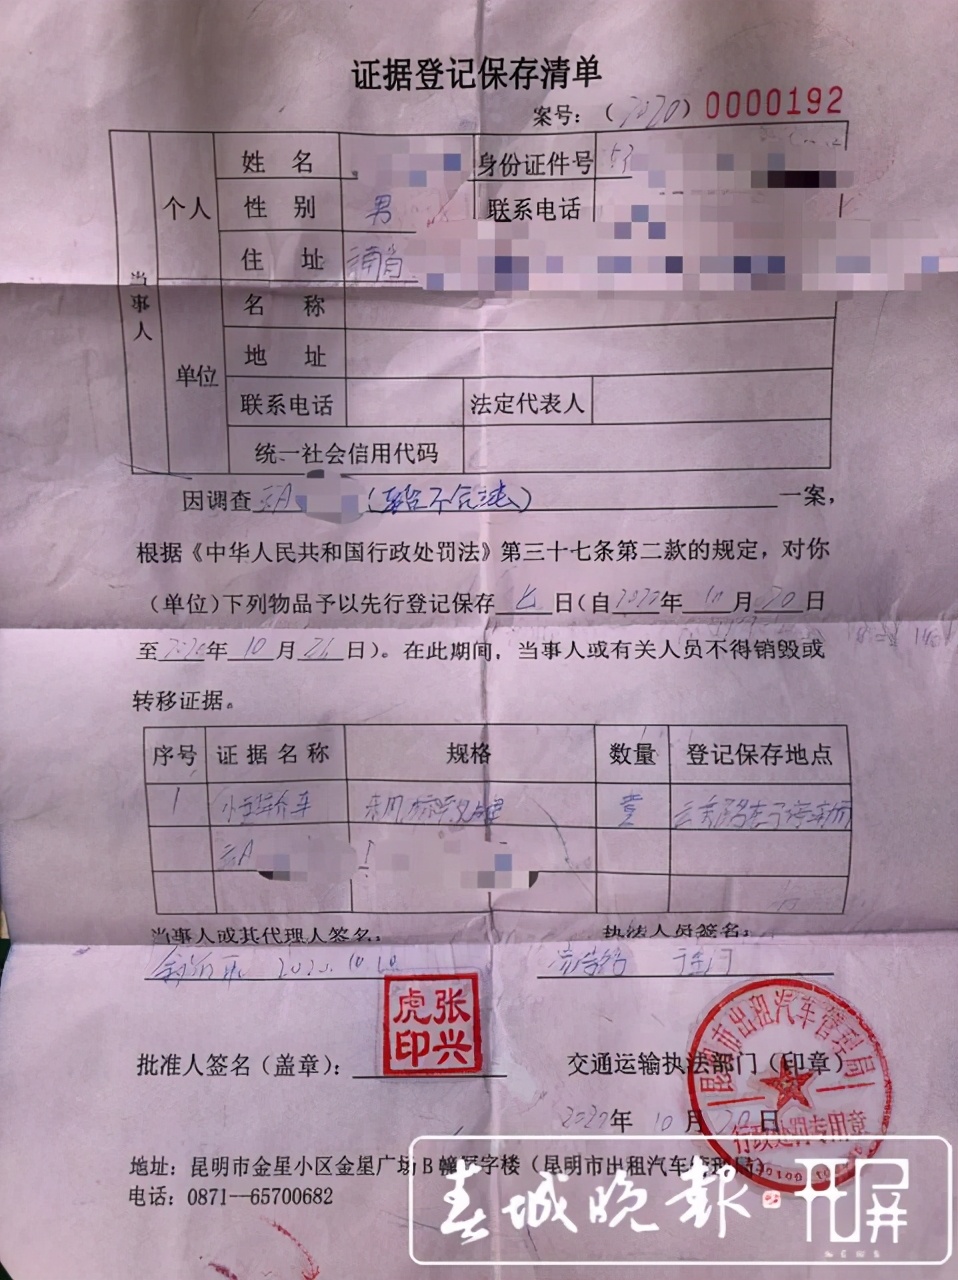 证据登记保存清单
案号：（2020）0000192
当事人
个人
姓 名
身份证件号 53
性 别 男
联系电话
住 址 云南省
单位
名 称
地 址
联系电话
法定代表人
统一社会信用代码
因调查云A （ 不合法）一案，
根据《中华人民共和国行政处罚法》第三十七条第二款的规定，对你
（单位）下列物品予以先行登记保存七日（自2020年10月20日
至2020年10月26日）。在此期间，当事人或有关人员不得销毁或
转移证据。
序号 证据名称 规格 数量 登记保存地点
1 小型轿车 壹
云A
当事人或其代理人签名：
执法人员签名：
2020.10.20
张兴虎印
批准人签名（盖章）：
交通运输执法部门（印章）
昆明市出租汽车管理局
行政处罚专用章
2020年10月20日
地址：昆明市金星小区金星广场B幢写字楼（昆明市出租汽车管理局）
电话：0871--65700682
春城晚報
开屏
NEWS